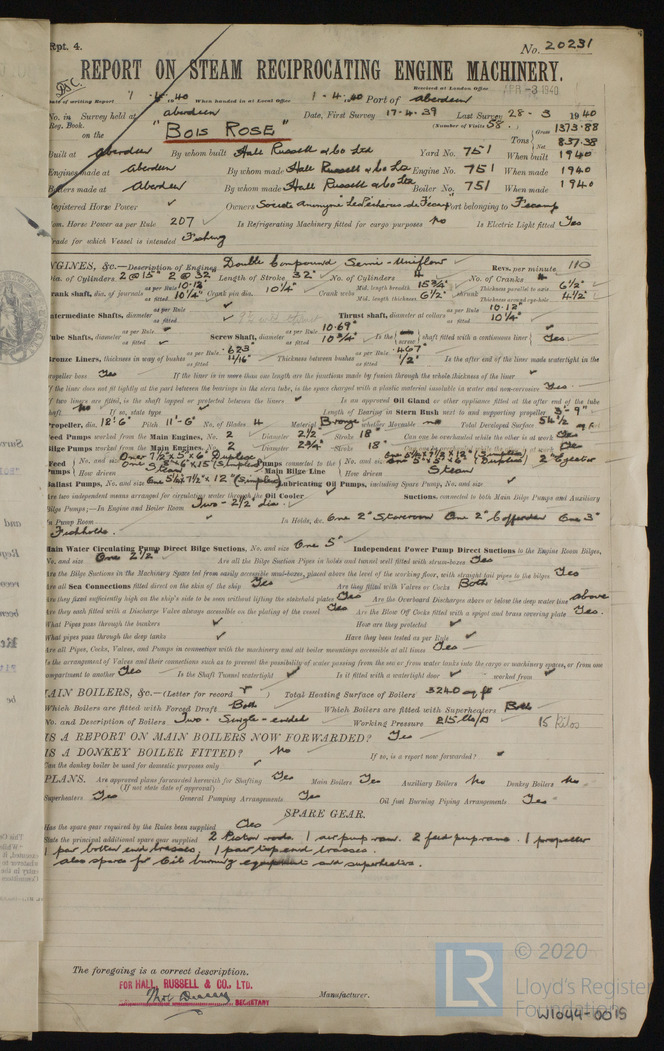 Rpt. 4.
No. 20231
REPORT ON STEAM RECIPROCATING ENGINE MACHINERY.
Received at London Office APR -3 1940
Date of writing Report 1 . 4. 1940 When handed in at Local Office 1 - 4. 1940 Port of Aberdeen
No. in Survey held at Aberdeen Date, First Survey 17-4-39 Last Survey 28-3 1940
Reg. Book. (Number of Visits 58.)
on the "BOIS ROSE" Tons Gross 1373.88 Net 837.38
Built at Aberdeen By whom built Hall Russell & Co Ltd Yard No. 751 When built 1940
Engines made at Aberdeen By whom made Hall Russell & Co Ltd Engine No. 751 When made 1940
Boilers made at Aberdeen By whom made Hall Russell & Co Ltd Boiler No. 751 When made 1940
Registered Horse Power Owners Societe Anonyme Les Pecheries de Fécamp Port belonging to Fécamp
Nom. Horse Power as per Rule 207 Is Refrigerating Machinery fitted for cargo purposes No Is Electric Light fitted Yes
Trade for which Vessel is intended Fishing
ENGINES, &c.—Description of Engines Double Compound Semi-Uniflow Revs. per minute 110
Dia. of Cylinders 2 @ 15" 2 @ 32" Length of Stroke 32" No. of Cylinders 4 No. of Cranks 4
Crank shaft, dia. of journals as per Rule 10.12" as fitted 10 1/4" Crank pin dia. 10 1/4" Crank webs Mid. length breadth 15 3/4" Mid. length thickness 6 1/2" shrunk Thickness parallel to axis 6 1/2" Thickness around eye-hole 4 1/2"
Intermediate Shafts, diameter as per Rule as fitted Thrust shaft, diameter at collars as per Rule 10.12" as fitted 10 1/4"
Tube Shafts, diameter as per Rule as fitted Screw Shaft, diameter as per Rule 10.69" as fitted 10 3/4" Is the screw shaft fitted with a continuous liner Yes
Bronze Liners, thickness in way of bushes as per Rule .623 as fitted 11/16" Thickness between bushes as per Rule .467" as fitted 1/2" Is the after end of the liner made watertight in the
propeller boss Yes If the liner is in more than one length are the junctions made by fusion through the whole thickness of the liner
If the liner does not fit tightly at the part between the bearings in the stern tube, is the space charged with a plastic material insoluble in water and non-corrosive Yes
If two liners are fitted, is the shaft lapped or protected between the liners Is an approved Oil Gland or other appliance fitted at the after end of the tube
shaft No If so, state type Length of Bearing in Stern Bush next to and supporting propeller 3'-9"
Propeller, dia. 12'6" Pitch 11'-6" No. of Blades 4 Material Bronze whether Moveable no Total Developed Surface 54 1/2 sq. feet
Feed Pumps worked from the Main Engines, No. 2 Diameter 2 1/2" Stroke 18" Can one be overhauled while the other is at work Yes
Bilge Pumps worked from the Main Engines, No. 2 Diameter 2 3/4" Stroke 18" Can one be overhauled while the other is at work Yes
Feed Pumps No. and size How driven Steam Pumps connected to the Main Bilge Line No. and size How driven Steam
Ballast Pumps, No. and size One 5 1/4 x 7 1/2 x 12" (Simplex) Lubricating Oil Pumps, including Spare Pump, No. and size
Are two independent means arranged for circulating water through the Oil Cooler Suctions, connected to both Main Bilge Pumps and Auxiliary
Bilge Pumps;—In Engine and Boiler Room Two - 2 1/2" dia.
In Pump Room In Holds, &c. One 2" Storeroom One 2" Cofferdam One 3"
Fishholds.
Main Water Circulating Pump Direct Bilge Suctions, No. and size One 5" Independent Power Pump Direct Suctions to the Engine Room Bilges,
No. and size One 2 1/2 Are all the Bilge Suction Pipes in holds and tunnel well fitted with strum-boxes Yes
Are the Bilge Suctions in the Machinery Space led from easily accessible mud-boxes, placed above the level of the working floor, with straight tail pipes to the bilges Yes
Are all Sea Connections fitted direct on the skin of the ship Yes Are they fitted with Valves or Cocks Both
Are they fixed sufficiently high on the ship's side to be seen without lifting the stokehold plates Yes Are the Overboard Discharges above or below the deep water line above
Are they each fitted with a Discharge Valve always accessible on the plating of the vessel Yes Are the Blow Off Cocks fitted with a spigot and brass covering plate Yes.
What Pipes pass through the bunkers How are they protected
What pipes pass through the deep tanks Have they been tested as per Rule
Are all Pipes, Cocks, Valves, and Pumps in connection with the machinery and all boiler mountings accessible at all times Yes
Is the arrangement of Valves and their connections such as to prevent the possibility of water passing from the sea or from water tanks into the cargo or machinery spaces, or from one
compartment to another Yes Is the Shaft Tunnel watertight Is it fitted with a watertight door worked from
MAIN BOILERS, &c.—(Letter for record ) Total Heating Surface of Boilers 3240 sq ft
Which Boilers are fitted with Forced Draft Both Which Boilers are fitted with Superheaters Both
No. and Description of Boilers Two - Single-ended Working Pressure 215 lbs/□" 15 kilos
IS A REPORT ON MAIN BOILERS NOW FORWARDED? Yes
IS A DONKEY BOILER FITTED? No If so, is a report now forwarded?
Can the donkey boiler be used for domestic purposes only
PLANS. Are approved plans forwarded herewith for Shafting Yes Main Boilers Yes Auxiliary Boilers No Donkey Boilers No
(If not state date of approval)
Superheaters Yes General Pumping Arrangements Yes Oil fuel Burning Piping Arrangements Yes
SPARE GEAR.
Has the spare gear required by the Rules been supplied Yes
State the principal additional spare gear supplied 2 Piston rods. 1 air pump ram. 2 feed pump rams. 1 propeller
1 pair bottom end brasses. 1 pair top end brasses.
also spares for Oil burning equipment and superheaters.
The foregoing is a correct description.
FOR HALL, RUSSELL & CO. LTD.
SECRETARY
Manufacturer.
LR
© 2020
Lloyd's Register
Foundation
W1044-0015